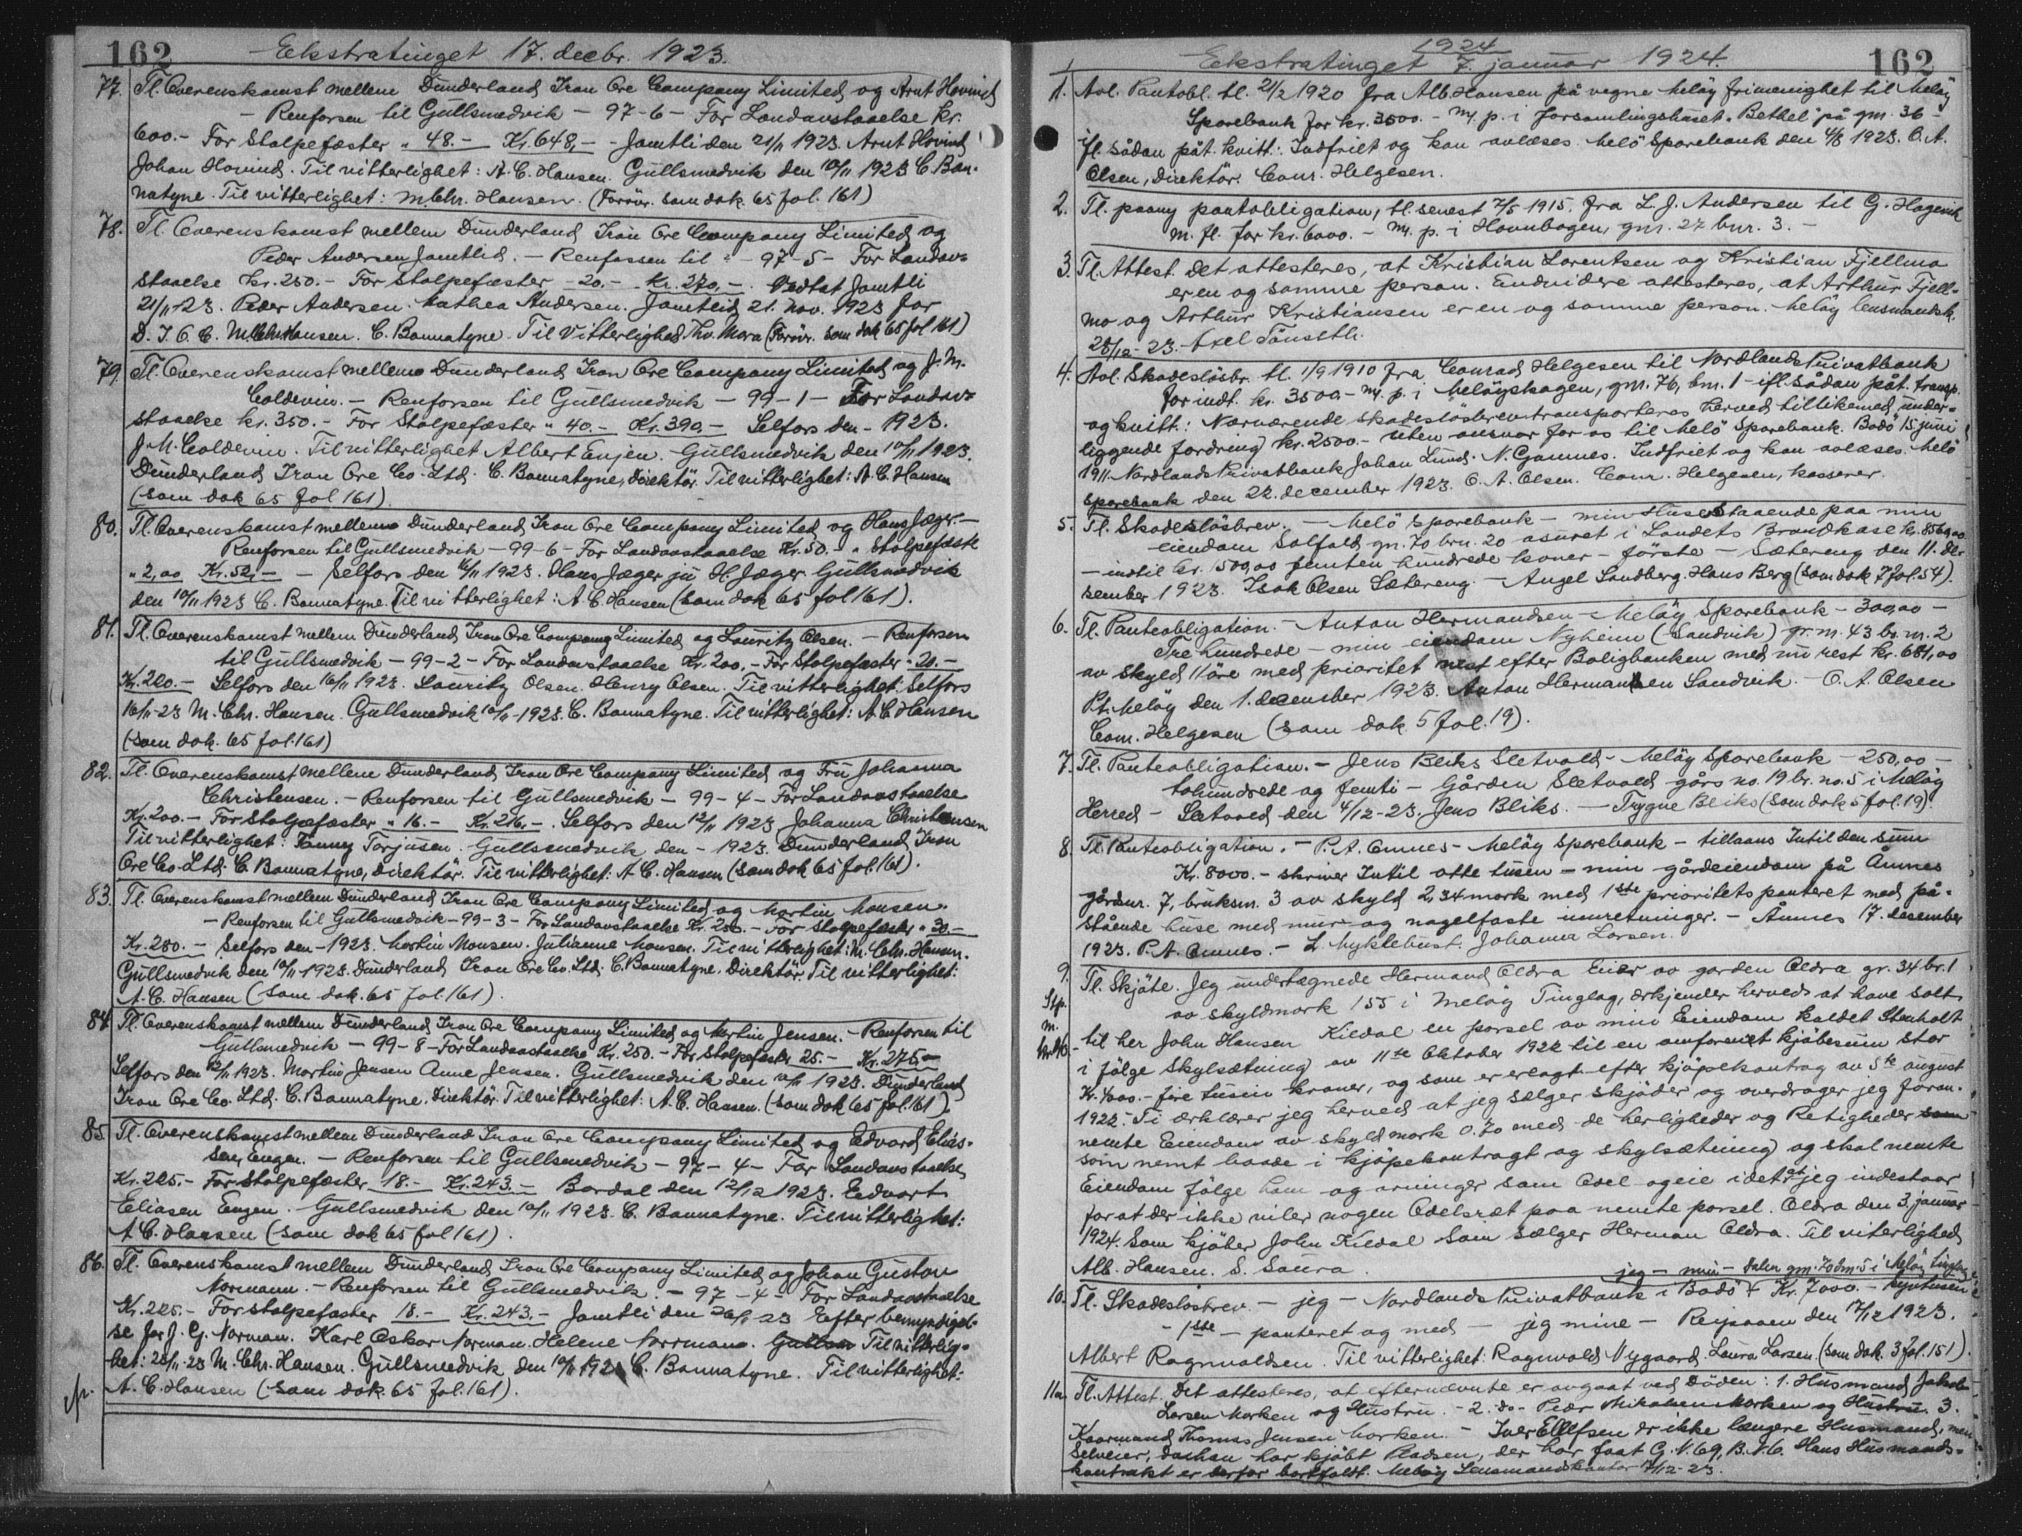 162
Ekstratinget 17. decbr. 1923.
77. Tl. Overenskomst mellem Dunderland Iron Ore Company Limited og Arnt Hovind
- Renforsen til Gullsmedvik - 97-6 - For Landavstaaelse kr.
600.- For Stolpefæster " 48.- Kr. 648,- - Jamtli den 21/11 1923. Arnt Hovind
Johan Hovind. Til vitterlighet: A. C. Hansen. Gullsmedvik den 10/11 1923 C. Ban-
natyne. Til vitterlighet: M. Chr. Hansen. (Forövr. som dok. 65 fol. 161)
78. Tl. Overenskomst mellem Dunderland Iron Ore Company Limited og
Peder Andersen Jamtlid. - Renfossen til " - 97-5 - For Landav-
staaelse kr. 250.- For Stolpefæster - 20.- Kr. 270,- . Vedtat Jamtli
21/11 23. Peder Andersen. Mathea Andersen. Jamtlid 21. Nov. 1923 for
D. I. O. C. M. Chr. Hansen. C. Bannatyne. Til Vitterlighed Thv. Mora (Forövr. som dok 65 fol 161)
79. Tl. Overenskomst mellem Dunderland Iron Ore Company Limited og J. M.
Coldevin. - Renforsen til Gullsmedvik - 99-1 - For Landav-
staaelse kr. 350.- For Stolpefæster " 40.- Kr. 390.- Selfors den - 1923.
J. M. Coldevin. Til vitterlighet Albert Enjen. Gullsmedvik den 10/11 1923.
Dunderland Iron Ore Co. Ltd. C. Bannatyne, Direktör. Til vitterlighet: A. C. Hansen
(som dok 65 fol 161)
80. Tl. Overenskomst mellem Dunderland Iron Ore Company Limited og Hans Jæger. -
Renforsen til Gullsmedvik - 99-6 - For Landavstaaelse Kr. 50.- " Stolpefæste
" 2,00 Kr. 52,- - Selfors den 16/11 1923. Hans Jæger ju H. Jæger. Gullsmedvik
den 10/11 1923 C. Bannatyne. Til vitterlighet: A. C. Hansen (som dok 65 fol 161).
81. Tl. Overenskomst mellem Dunderland Iron Ore Company Limited og Lauritz Olsen. - Renforsen
til Gullsmedvik - 99-2 - For Landavstaaelse Kr. 200.- For Stolpefæster " 20.-
Kr. 220.- Selfors den 16/11 1923. Lauritz Olsen. Henry Olsen. Til vitterlighet: Selfors
16/11-23 M. Chr. Hansen. Gullsmedvik 10/11-1923. C. Bannatyne. Til vitterlighet: A. C. Hansen
(som dok. 65 fol. 161)
82. Tl. Overenskomst mellem Dunderland Iron Ore Company Limited og Fru Johanna
Christensen. - Renforsen til Gullsmedvik - 99-4 - For Landavstaaelse
Kr. 200.- For Stolpefæster " 16.- Kr. 216.- . Selfors den 12/11 1923 Johanna Christensen
Til vitterlighet: Fanny Torjusen. Gullsmedvik den - 1923. Dunderland Iron
Ore Co. Ltd. C. Bannatyne, Direktör. Til vitterlighet: A. C. Hansen (som dok 65 fol. 161).
83. Tl. Overenskomst mellem Dunderland Iron Ore Company Limited og Martin Monsen.
- Renforsen til Gullsmedvik - 99-3 - For Landavstaaelse Kr. 250.- For Stolpefæster " 30.-
Kr. 280.- Selfors den - 1923. Martin Monsen. Julianne Monsen. Til vitterlighet: M. Chr. Hansen.
Gullsmedvik den 10/11 1923. Dunderland Iron Ore Co. Ltd. C. Bannatyne. Direktör. Til vitterlighet:
A. C. Hansen (som dok. 65 fol. 161).
84. Tl. Overenskomst mellem Dunderland Iron Ore Company Limited og Martin Jensen. - Renforsen til
Gullsmedvik - 99-8 - For Landavstaaelse Kr. 250.- For Stolpefæster 25.- Kr. 275.-
Selfors den 12/11 1923. Martin Jensen Anne Jensen. Gullsmedvik den 10/11 1923. Dunderland
Iron Ore Co. Ltd. C. Bannatyne. Direktör. Til vitterlighet: A. C. Hansen. (som dok 65 fol. 161).
85. Tl. Overenskomst mellem Dunderland Iron Ore Company Limited og Edvard Elias-
sen, Engen. - Renforsen til Gullsmedvik - 97-4 - For Landavstaaelse
Kr. 225.- For Stolpefæster 18.- Kr. 243.- Bordal den 12/12 1923. Edvart
Eliasen Engen. Gullsmedvik den 10/11 1923. C. Bannatyne. Til vitterlighet:
A. C. Hansen (som dok 65 fol 161).
86. Tl. Overenskomst mellem Dunderland Iron Ore Company Limited og Johan Gustav
Normann. - Renforsen til Gullsmedvik. - 97-4 - For Landavstaaelse
Kr. 225.- For Stolpefæster 18.- Kr. 243.- Jamtli den 26/11 23 Efter bemyndigel-
se for J. G. Norman. Karl Oskar Norman. Helene Norrmann. Til vitterlig-
het: 28/11-23 M. Chr. Hansen. Gullsmedvik den 10/11 1923 C. Bannatyne. Til vitterlighet:
A. C. Hansen (som dok. 65 fol. 161).
162
1924
Ekstratinget 7. januar 1924.
1. Avl. Pantobl. tl. 21/2 1920 fra Alb. Hansen på vegne Melöy frimenighet til Melöy
Sparebank for kr. 3500.- m. p. i forsamlingshuset "Bethel" på gnr. 36 -
ifl. sådan påt. kvitt: Indfriet og kan avlæses. Melö Sparebank den 4/8 1923. O. A.
Olsen, Direktör. Conr. Helgesen.
2. Tl. paany pantobligation, tl. senest 7/5 1915. fra L. J. Andersen til G. Hagevik
m. fl. for kr. 6000.- m. p. i Havnbogen, gnr. 27 bnr. 3. -
3. Tl. Attest. Det attesteres, at Kristian Lorentsen og Kristian Fjellmo
er en og samme person. Endvidere attesteres, at Arthur Fjell-
mo og Arthur Kristiansen er en og samme person. Melöy lensmandsk.
28/12-23. Axel Tönseth.
4. Avl. Skadeslösbr. tl. 1/9 1910 fra Conrad Helgesen til Nordlands Privatbank
for indt. kr. 3500.- m. p. i Melöyskagen, gnr. 76, bnr. 1 - ifl. sådan påt. transp.
og kvitt.: Nærværende skadeslösbrev transporteres herved tillikemed under-
liggende fordring kr. 2500.- uten ansvar for os til Melö Sparebank. Bodö 15 juni
1911. Nordlands Privatbank Johan Lund. N. Gannes. Indfriet og kan avlæses. Melö
Sparebank den 22. december 1923. O. A. Olsen. Conr. Helgesen, kasserer.
5. Tl. Skadeslösbrev. - Melö Sparebank - min Huse staaende paa min
eiendom Solfald gn. 70 brn. 20 asuret i Landets Brandkase kr. 8560,00
- indtil kr. 1500,00 femten hundrede kroner - förste - Sætereng den 11. De-
sember 1923. Isak Olsen Sætereng. - Angel Sandberg. Hans Berg (som dok 7 fol. 54).
6. Tl. Panteobligation. - Anton Hermandsen - Melöy Sparebank - 300,00 -
Tre hundrede - min eiendom Nyheim (Sandvik) gr. m. 43 br. m. 2
av skyld 11 öre med prioritet nest efter Boligbanken med nu rest kr. 681,00
Pt. Melöy den 1. december 1923. Anton Hermansen Sandvik. - O. A. Olsen
Conr. Helgesen (som dok 5 fol. 19).
7. Tl. Panteobligation. - Jens Bliks Sletvold - Melöy Sparebank - 250,00 -
tohundrede og femti - Gården Sletvold gårs no. 19 br. no. 5 i Melöy
Herred - Sletvold den 4/12-23. Jens Bliks. - Trygve Bliks (som dok 5 fol. 19).
8. Tl. Panteobligation. - P. A. Ånnes - Melöy Sparebank - tillaans Intil den sum
Kr. 8000.- skriver Intil otte tusen - min gårdeiendom på Ånnes
gårdsnr. 7, bruksnr. 3 av skyld 2,34 mark med 1ste prioritets panteret med på-
stående huse med mur og nagelfaste innretninger. - Ånnes 17. desember
1923. P. A. Ånnes. - L. Myklebust. Johanna Larsen.
9. Tl. Skjöte. Jeg undertegnede Hermand Oldra Eier av garden Oldra gr. 34 br. 1
av skyldmark 155 i Melöy Tinglag, erkjender herved at have solt
til her John Hansen Kildal en parsel av min Eiendom kaldet Stenholt
i fölge Skylsætning av 11te Oktober 1922 til en omforenet kjöbesum stor
Kr. 4000.- fire tusin kroner, og som er erlagt efter kjöpekontrag av 5te august
1922. Ti ærklærer jeg herved at jeg sælger skjöder og overdrager jeg foran-
nemte Eiendom av skyld mark 0.70 med de herligheder og Retigheder som
som nemt baade i kjöpekontragt og skylsætning og skal nemte
Eiendom fölge ham og arvinger som Odel og eie idet jeg indestaar
for at der ikke viler nogen Odelsret paa nemte parsel. Oldra den 3. januar
1924. Som kjöber John Kildal Som sælger Herman Oldra. Til viterlighed
Alb. Hansen. S. Saura.
jeg - min - Dalen gnr. 70 bnr. 5 i Melöy Tinglag
10. Tl. Skadeslösbrev. - jeg - Nordlands Privatbank i Bodö + Kr. 7000.- syvtusen
- 1ste - panteret og med - jeg mine - Reipaaen den 17/12 1923.
Albert Ragnvaldsen. Til vitterlighet: Ragnvald Nygaard. Laura Larsen. (som dok. 3 fol. 151).
11a. Tl. Attest. Det attesteres, at efternævnte er avgaat ved Döden: 1. Husmand Jakob
Larsen Marken og Hustru. - 2. do - Peder Mikalsen Marken og Hustru. 3.
Kaarmand Thomas Jensen Marken. - Iver Ellefsen er ikke længere Husmand, men
Selveier, da han har kjöbt Pladsen, der har faat G. N. 69, B. N. 6. Hans Husmands-
kontrakt er derfor bortfaldt. Melöy Lensmandskontor 17/12-23.